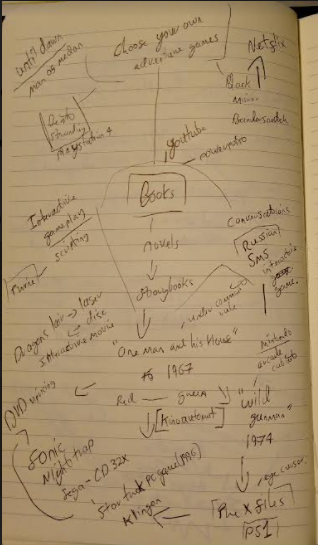 Until dawn
man of medan
Choose your own
adventure games
Netflix
Black
mirror
Bandersnatch
Death
Stranding
Playstation 4
youtube
powerpoint
Books
Interactive
gameplay
scripting
novels
Storybooks
Conversations
Russian
SMS
interactive
game.
Dragons lair → laser
disc
Interactive movie
under communist
rule
"One man and his House"
1967
Nintendo
arcade
Red — green
[Kinoautomat]
"Wild
gunman"
1974
DVD
Sonic
Night trap
Sega - CD 32X
Star trek PC game (1996)
Klingon
The X files
PS1